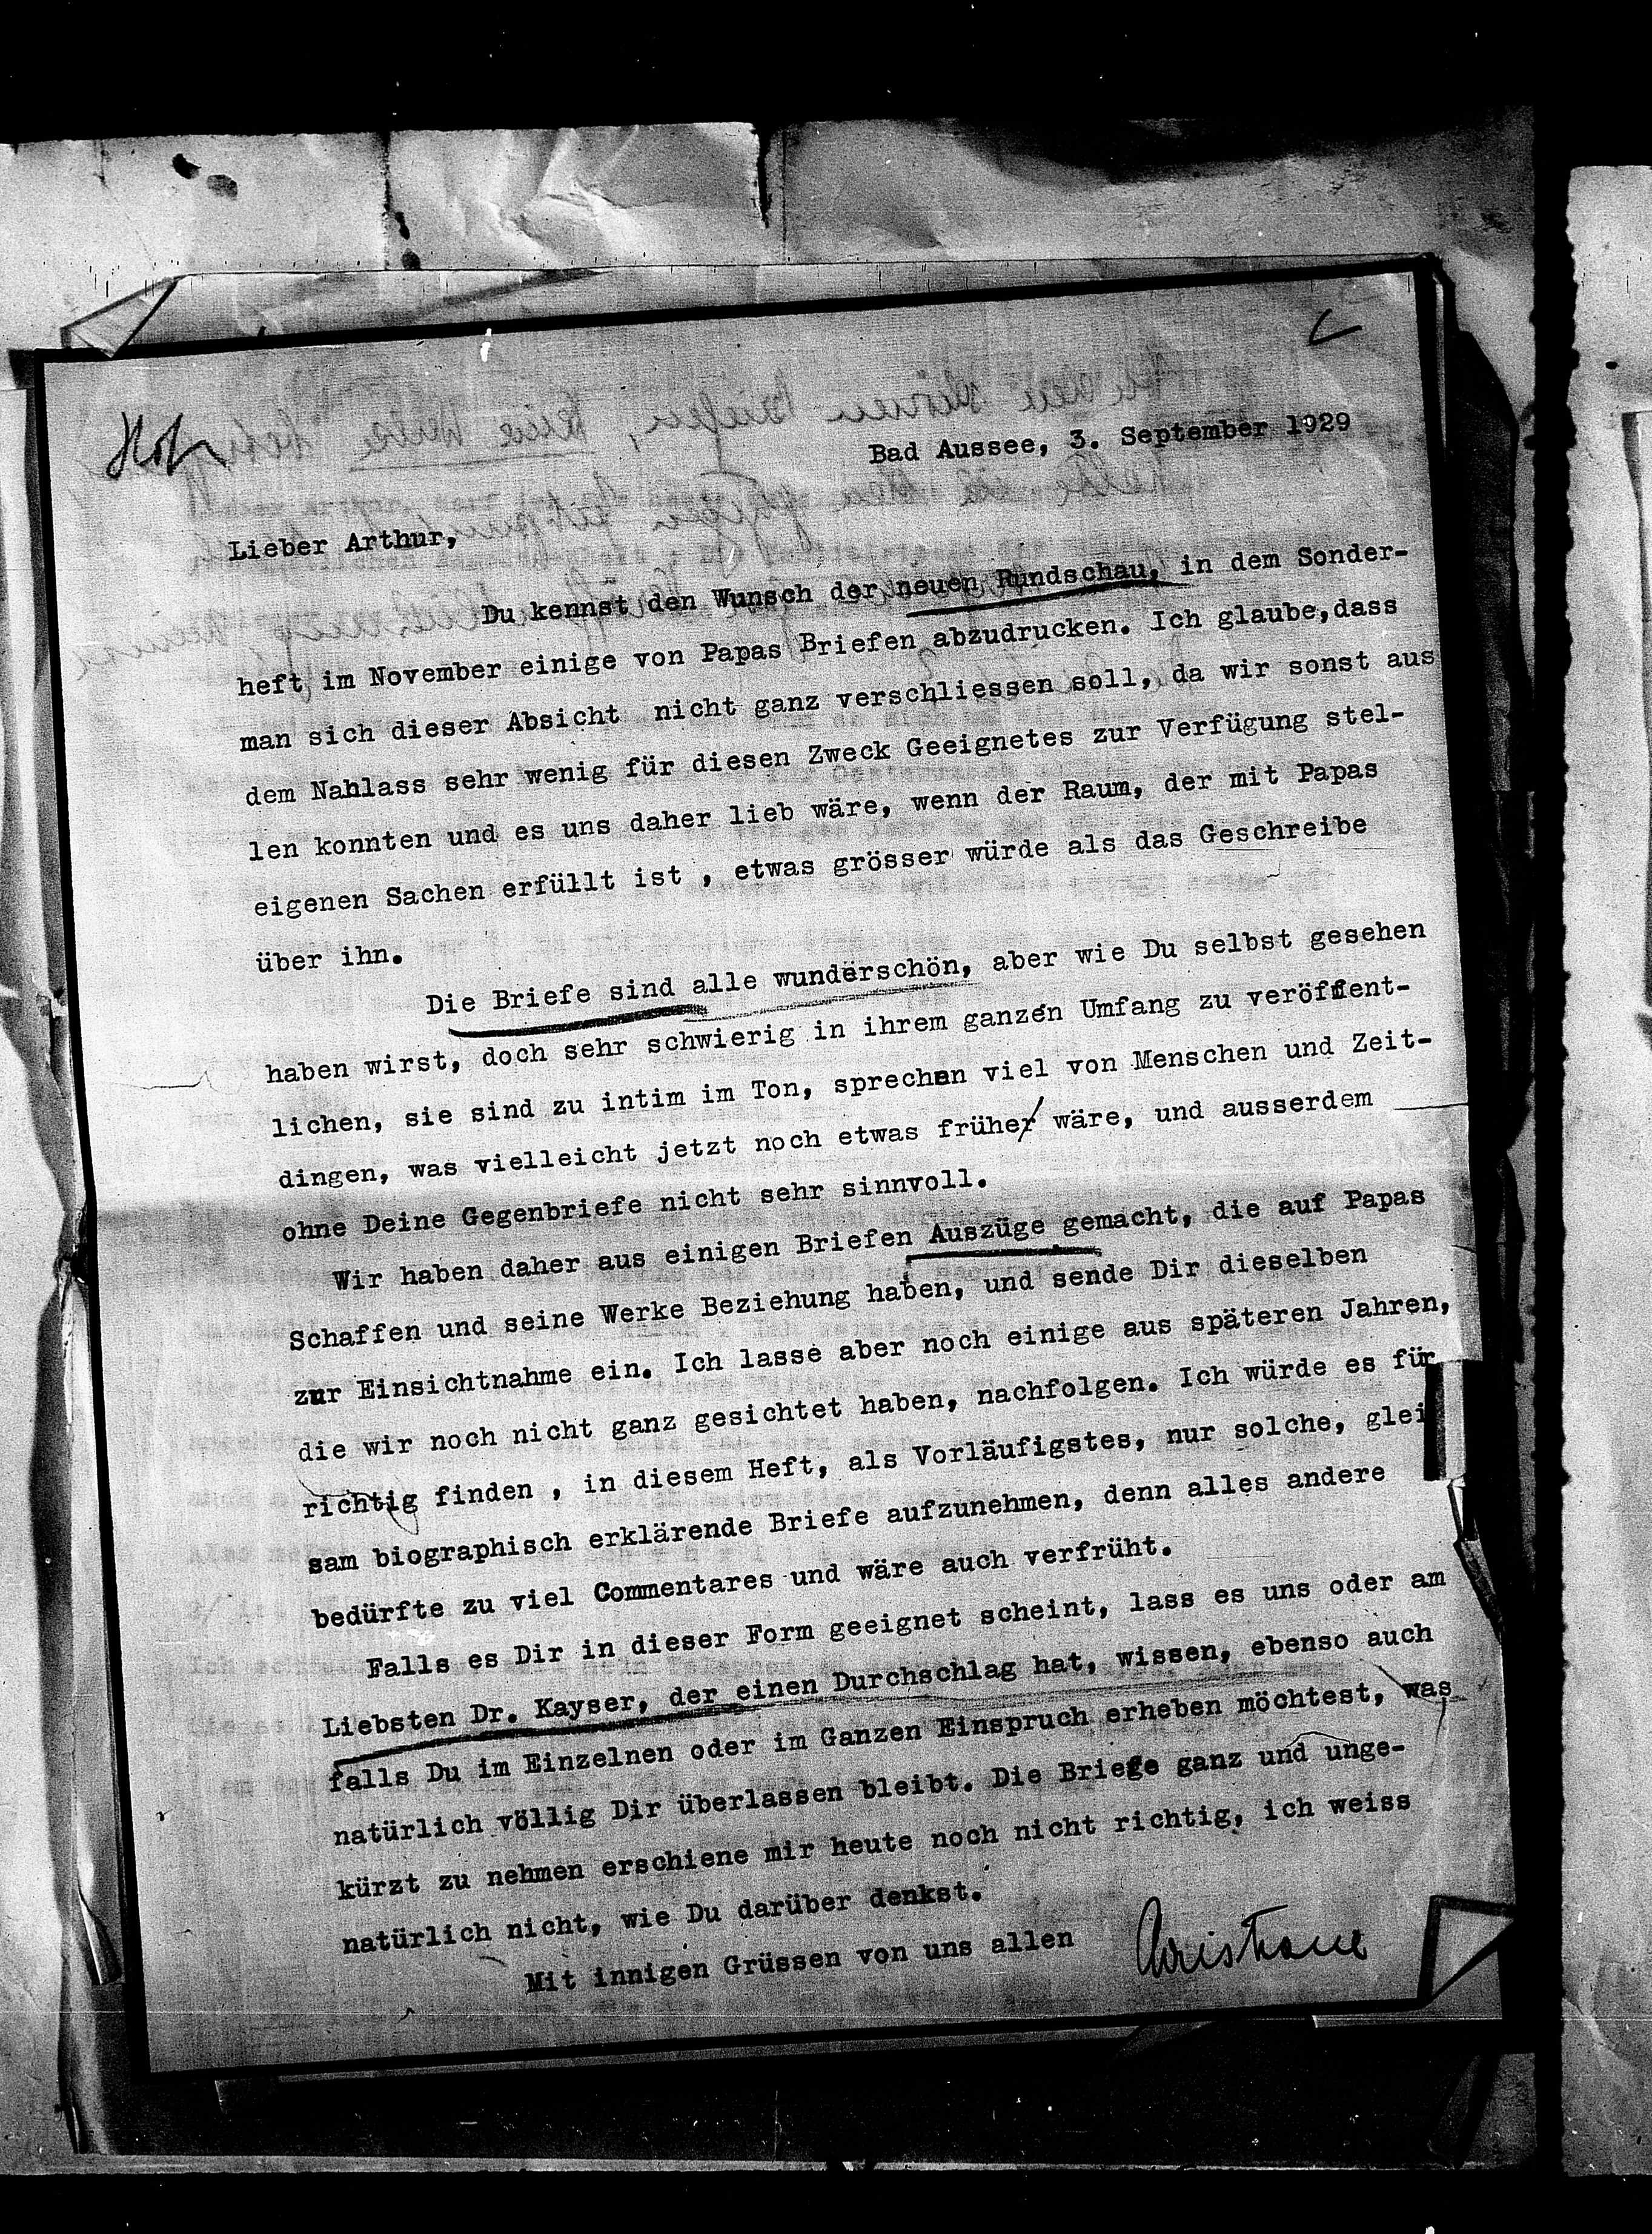 Hofm
Bad Aussee, 3. September 1929
Lieber Arthur,
Du kennst den Wunsch der neuen Rundschau, in dem Sonder-
heft im November einige von Papas Briefen abzudrucken. Ich glaube, dass
man sich dieser Absicht nicht ganz verschliessen soll, da wir sonst aus
dem Nahlass sehr wenig für diesen Zweck Geeignetes zur Verfügung stel-
len konnten und es uns daher lieb wäre, wenn der Raum, der mit Papas
eigenen Sachen erfüllt ist , etwas grösser würde als das Geschreibe
über ihn.
Die Briefe sind alle wunderschön, aber wie Du selbst gesehen
haben wirst, doch sehr schwierig in ihrem ganzen Umfang zu veröffent-
lichen, sie sind zu intim im Ton, sprechen viel von Menschen und Zeit-
dingen, was vielleicht jetzt noch etwas früher wäre, und ausserdem
ohne Deine Gegenbriefe nicht sehr sinnvoll.
Wir haben daher aus einigen Briefen Auszüge gemacht, die auf Papas
Schaffen und seine Werke Beziehung haben, und sende Dir dieselben
zur Einsichtnahme ein. Ich lasse aber noch einige aus späteren Jahren,
die wir noch nicht ganz gesichtet haben, nachfolgen. Ich würde es für
richtig finden , in diesem Heft, als Vorläufigstes, nur solche, glei
sam biographisch erklärende Briefe aufzunehmen, denn alles andere
bedürfte zu viel Commentares und wäre auch verfrüht.
Falls es Dir in dieser Form geeignet scheint, lass es uns oder am
Liebsten Dr. Kayser, der einen Durchschlag hat, wissen, ebenso auch
falls Du im Einzelnen oder im Ganzen Einspruch erheben möchtest, was
natürlich völlig Dir überlassen bleibt. Die Briege ganz und unge-
kürzt zu nehmen erschiene mir heute noch nicht richtig, ich weiss
natürlich nicht, wie Du darüber denkst.
Mit innigen Grüssen von uns allen
Christiane